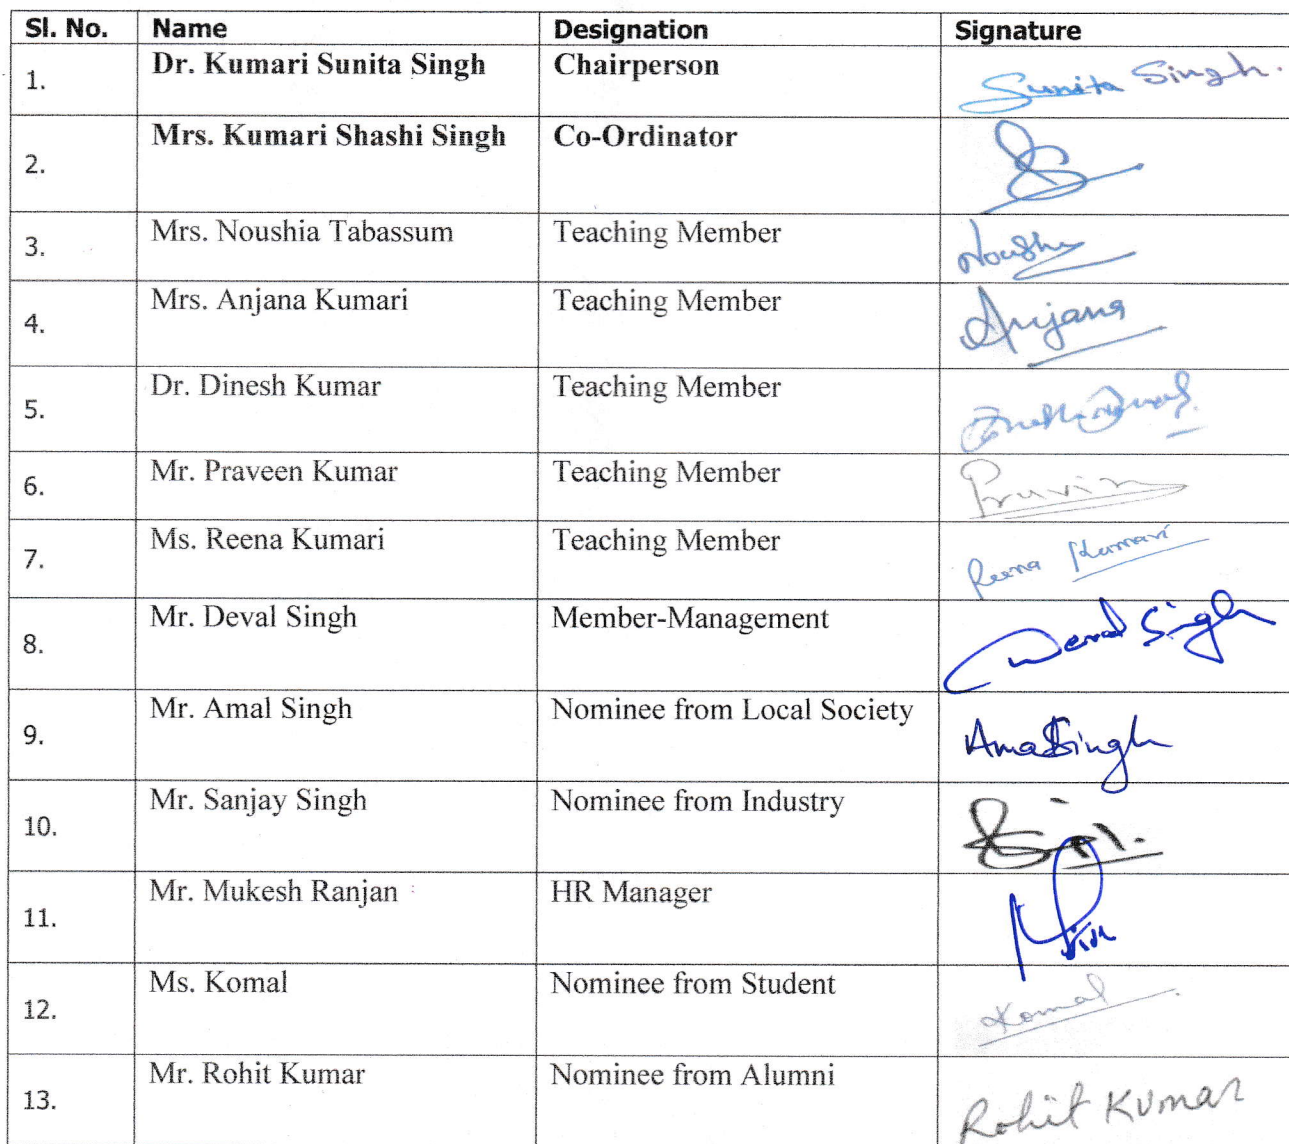 Sl. No. Name Designation Signature
1. Dr. Kumari Sunita Singh Chairperson Sunita Singh.
2. Mrs. Kumari Shashi Singh Co-Ordinator
3. Mrs. Noushia Tabassum Teaching Member
4. Mrs. Anjana Kumari Teaching Member Anjana
5. Dr. Dinesh Kumar Teaching Member
6. Mr. Praveen Kumar Teaching Member Pruvin
7. Ms. Reena Kumari Teaching Member Reena Kumari
8. Mr. Deval Singh Member-Management Deval Singh
9. Mr. Amal Singh Nominee from Local Society Amal Singh
10. Mr. Sanjay Singh Nominee from Industry
11. Mr. Mukesh Ranjan HR Manager
12. Ms. Komal Nominee from Student Komal
13. Mr. Rohit Kumar Nominee from Alumni Rohit Kumar